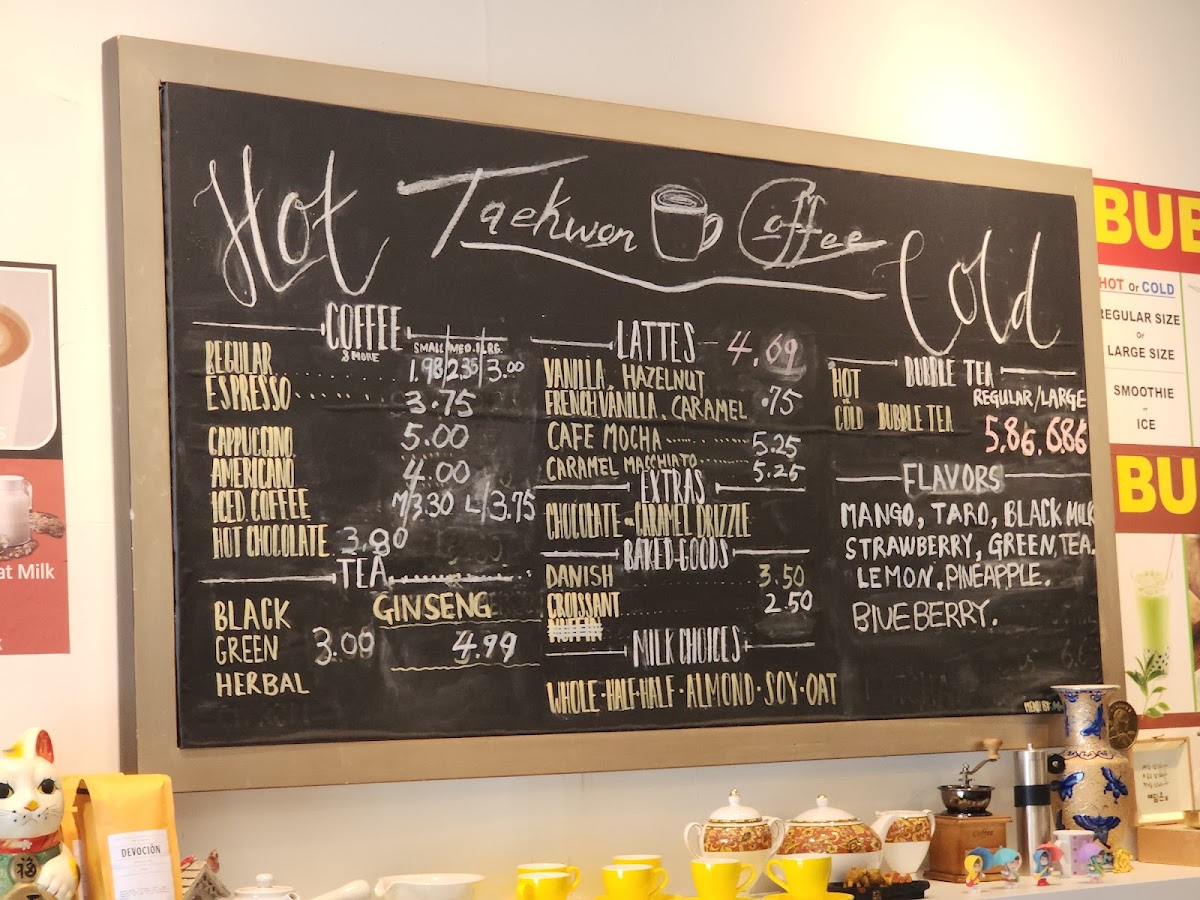 Hot
Taekwon Coffee
Cold
COFFEE
& MORE
SMALL MED. LRG.
REGULAR 1.98 2.35 3.00
ESPRESSO 3.75
CAPPUCCINO 5.00
AMERICANO 4.00
ICED COFFEE M/3.30 L/3.75
HOT CHOCOLATE 3.80
TEA
BLACK
GREEN 3.00
HERBAL
GINSENG
4.99
LATTES 4.69
VANILLA. HAZELNUT
FRENCH VANILLA. CARAMEL .75
CAFE MOCHA 5.25
CARAMEL MACCHIATO 5.25
EXTRAS
CHOCOLATE OR CARAMEL DRIZZLE
BAKED GOODS
DANISH 3.50
CROISSANT 2.50
MUFFIN
MILK CHOICES
WHOLE·HALF·HALF·ALMOND·SOY·OAT
BUBBLE TEA
REGULAR/LARGE
HOT
OR
COLD BUBBLE TEA 5.86. 6.86
FLAVORS
MANGO, TARO, BLACK MILK
STRAWBERRY, GREEN TEA.
LEMON. PINEAPPLE.
BLUEBERRY.
MENU BY:
BUB
HOT Or COLD
REGULAR SIZE
Or
LARGE SIZE
SMOOTHIE
or
ICE
BU
at Milk
DEVOCIÓN
福
Coffee